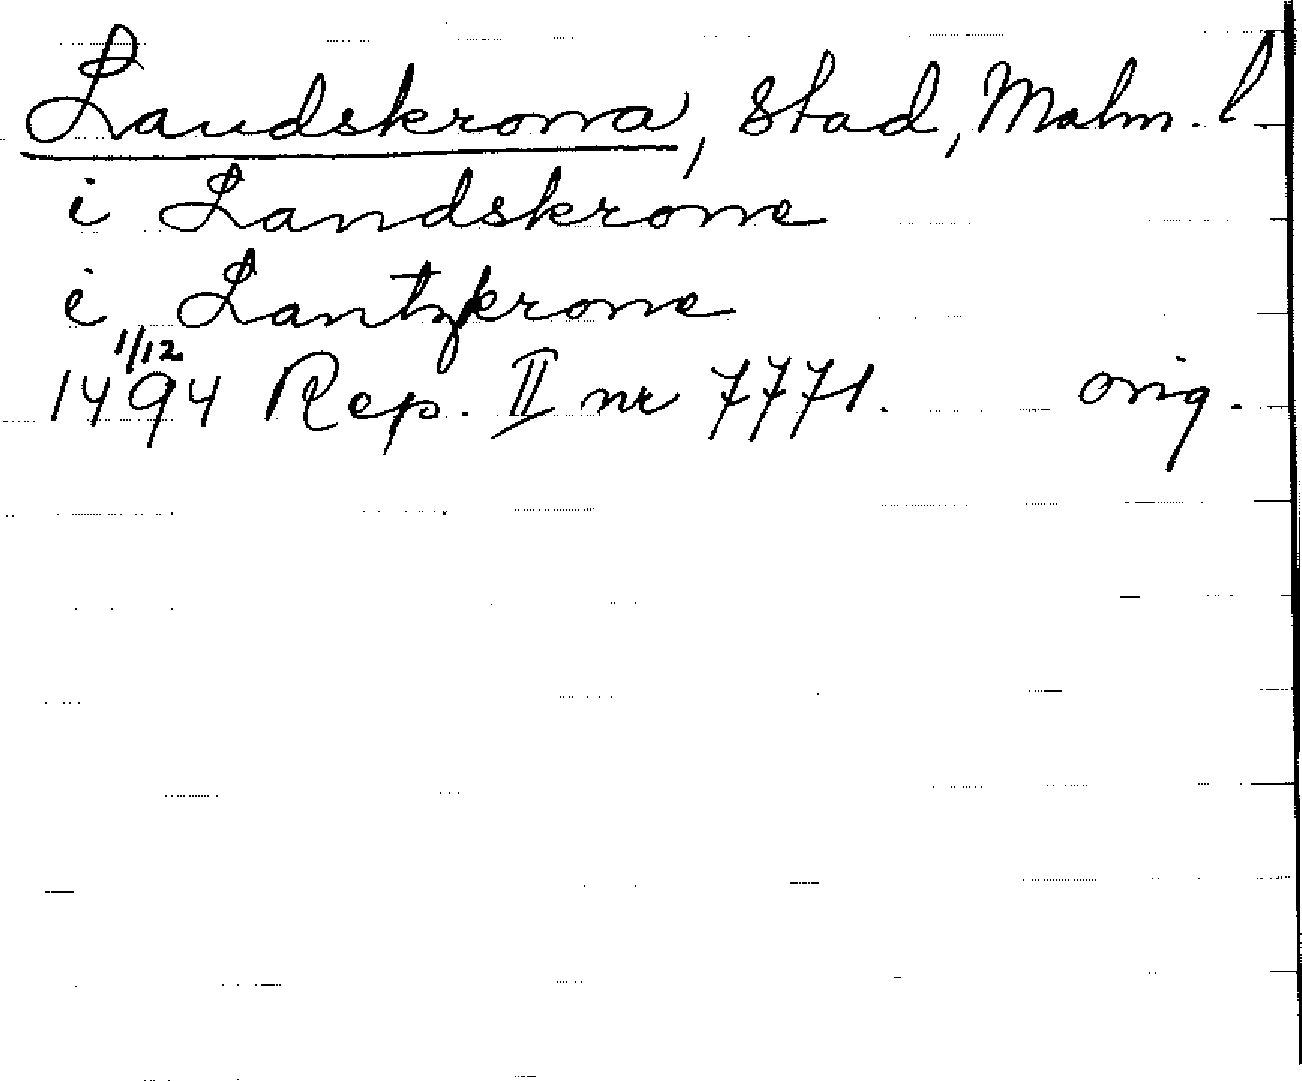 Landskrona, stad, Malm. l
i Landskrone
i Lantzkrone
1/12
1494 Rep. II nr 7771. orig.